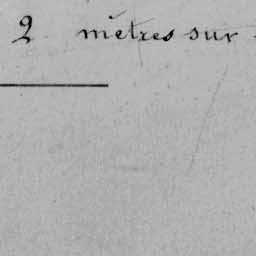 2 mètres sur